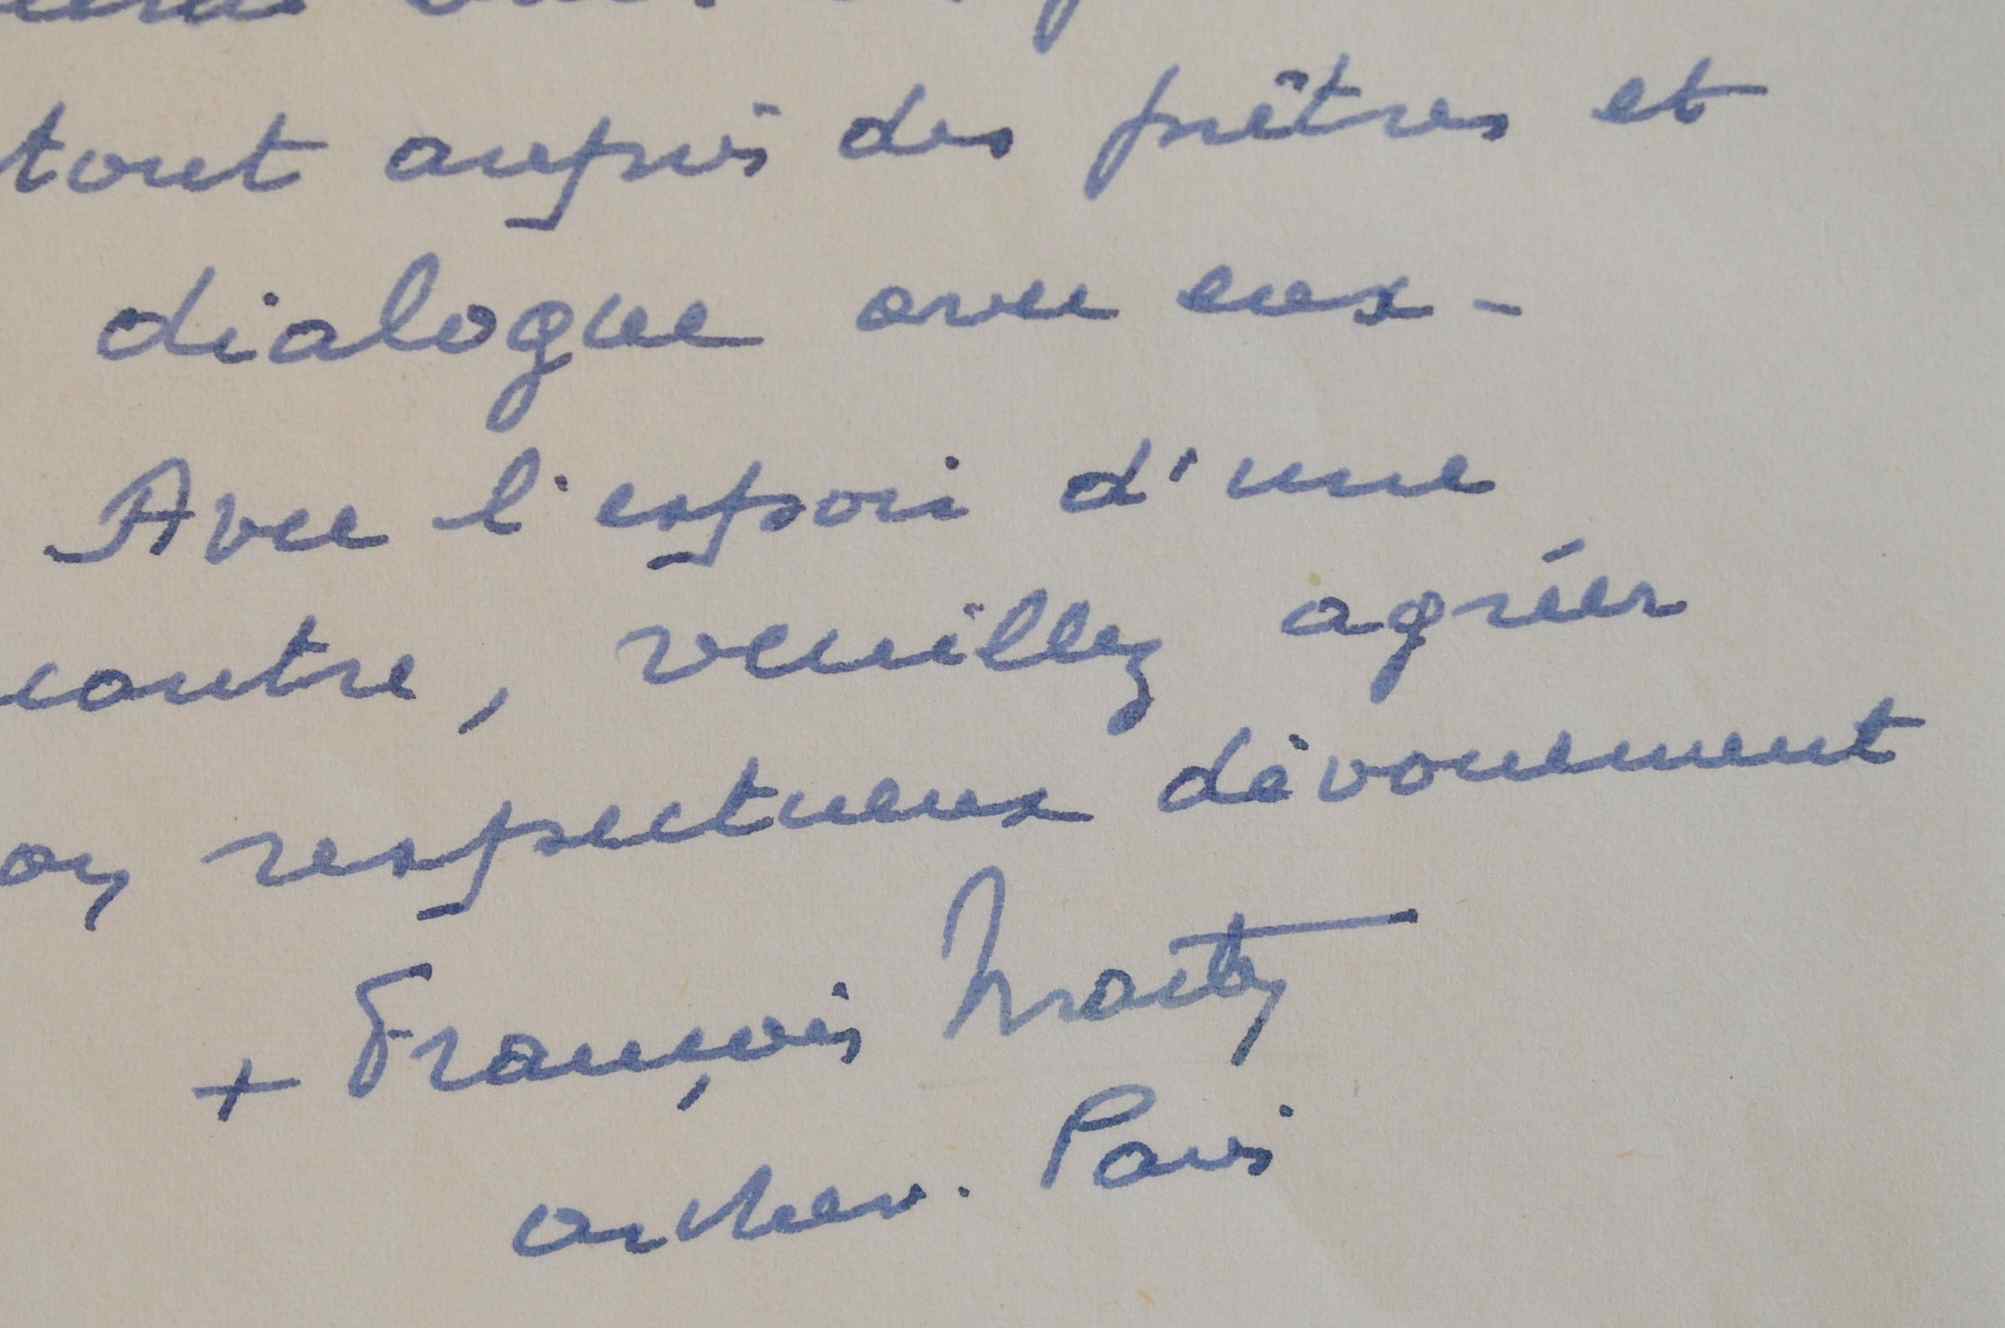 tout auprès des prêtres et
dialogue avec eux -
Avec l'espoir d'une
contre, veuillez agréer
on respectueux dévouement
+ François Marty
archev. Paris